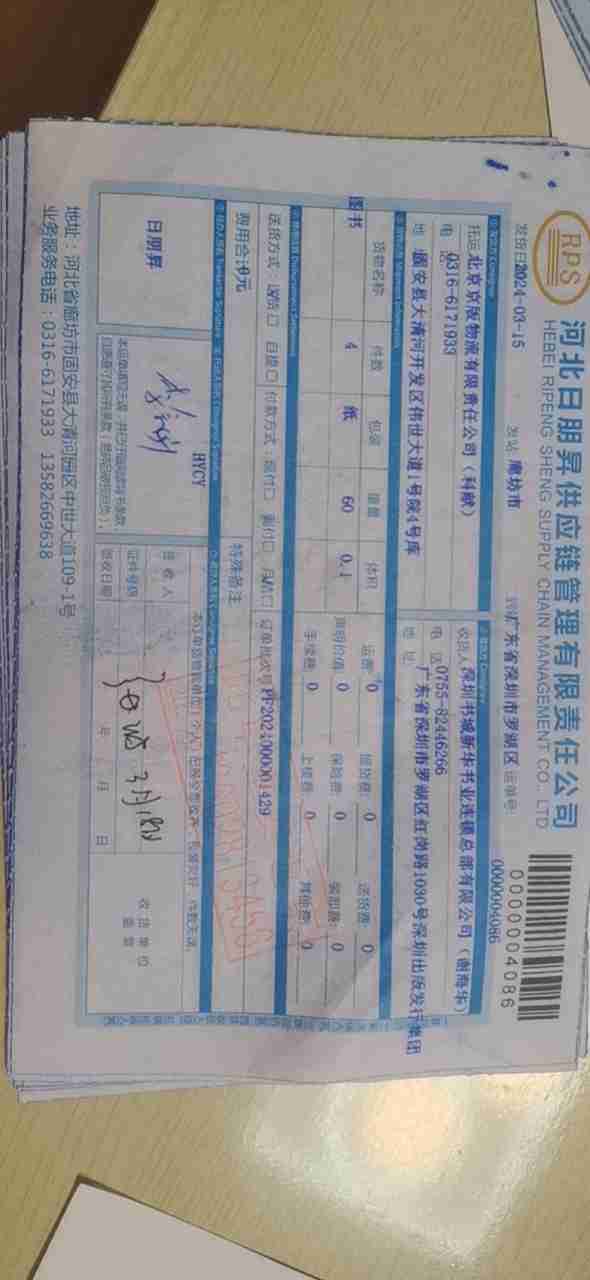 RPS
河北日朋昇供应链管理有限责任公司
HEBEI RIPENG SHENG SUPPLY CHAIN MANAGEMENT CO., LTD
0000004086
发货日2024-03-15
发站 廊坊市
广东省深圳市罗湖区 运单号:
0000004086
托运 北京京版物流有限责任公司（科献）
电 0316-6171933
地 固安县大清河开发区伟世大道1号院4号库
收货人 深圳书城新华书业连锁总部有限公司（谢海华）
电 话 0755-82446266
地 址 广东省深圳市罗湖区红岗路1030号深圳出版发行集团
货物名称 件数 包装 重量 体积
图书 4 纸 60 0.1
运费 0 提货费: 0 送货费: 0
声明价值: 0 保险费: 0 装卸费: 0
手续费: 0 上楼费: 0 其他费: 0
送货方式: 送货口 自提口 付款方式: 现付口 到付口 月结口 订单批次号 PF202400001429
费用合计:0元
特殊备注
日朋昇
HYCY
签收人
证件号码
签收日期 年 月 日
收货单位
盖章
地址：河北省廊坊市固安县大清河园区中世大道109-1号
业务服务电话：0316-6171933 13582669638